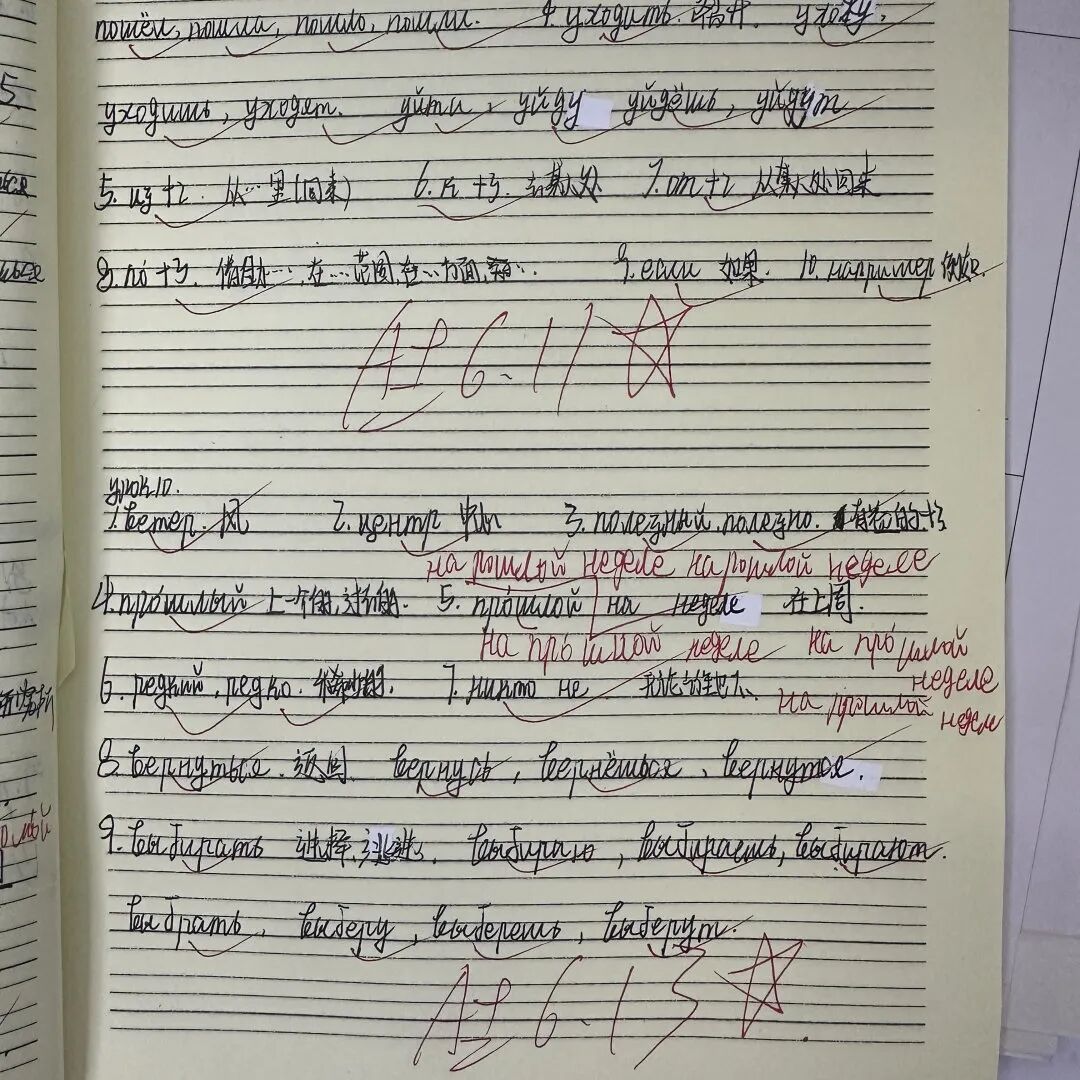 пошёл, пошла, пошло, пошли. 4. уходить. 离开. ухожу,
уходишь, уходят. уйти, уйду уйдёшь, уйдут
5. из+2. 从…里(回来) 6. к +3. 去某人处 7. от+2 从某人处回来
8. по +3. 在…范围,在…方面, 9. если 如果. 10. например 例如.
A+ 6.11
урок 10.
1. ветер. 风 2. центр 中心 3. полезный, полезно. 有益的 +3
на рошлой неделе на рошлой неделе
4. прошлый 上一个的, 过去的. 5. прошлой на неделе 在上周.
на прошлой неделе на прошлой неделе
6. редкий, редко. 7. никто не
на прошлой неделе
8. вернуться. 返回. вернусь, вернёшься, вернутся.
9. выбирать 选择, выбираю, выбираешь, выбирают.
выбрать, выберу, выберешь, выберут.
A+ 6.13